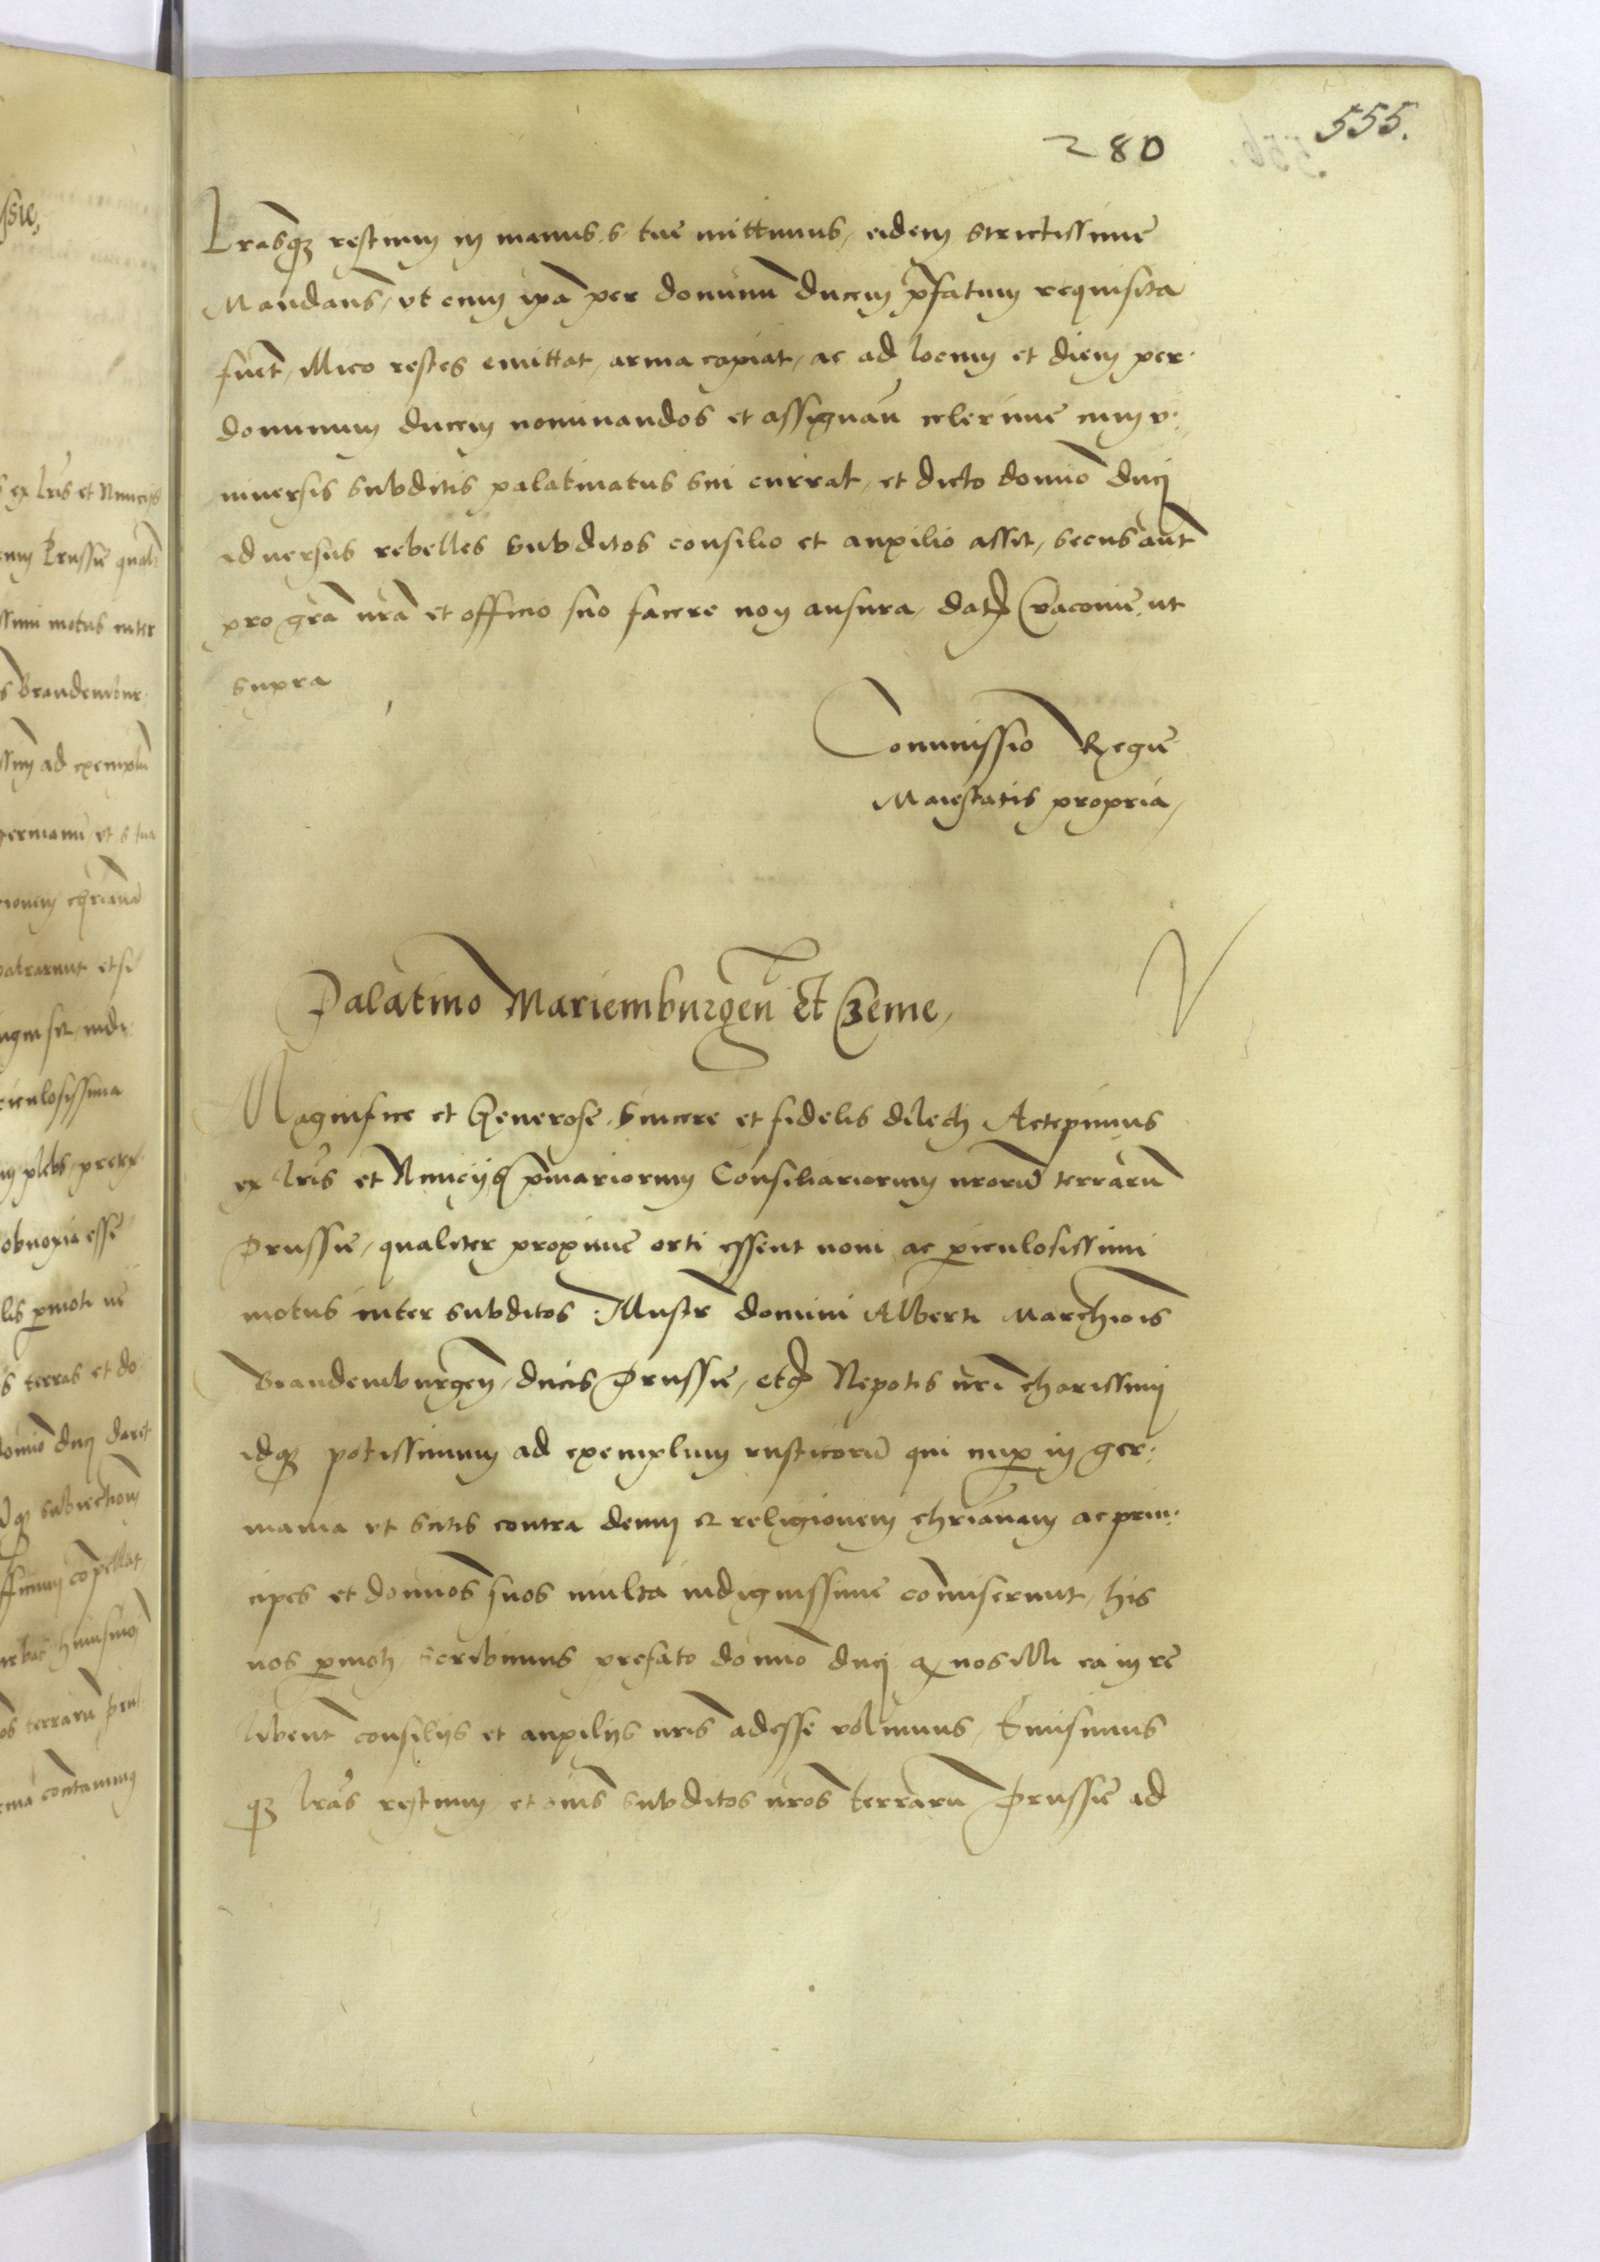 555.
280
Lrasq̃ restium in manus s tue mittimus, eidem strictissime
Mandans, ut cum ipã per dominum ducem p̃fatum requisita
fuet̃, illico restes emittat, arma capiat, ac ad locum et diem per
dominum ducem nominandos et assignañ celerime cum v·
niversis subditis palatinatus sui currat, et dicto domiõ duci
adversus rebelles subditos consilio et auxilio assit, secus aut̃
pro grã nrã et officio suo facere non ausura, dat̃ Cracovie, ut
supra
Commissio Regie
Maiestatis propria,
Palatino Mariemburgeñ et Czeme,
Magnifice et Generose, sincere et fidelis dilecti Accepimus
ex lris et Nuncijs p̃mariorum Consiliariorum nrorũ terrarũ
Prussie, qualiter proxime orti essent novi ac p̱iculosissimi
motus inter subditos Illustr̃ domini Alberti Marchiõis
Brandemburgeñ, ducis Prussie, etc̃ Nepotis nri charissimi
idq̃ potissimum ad exemplum rusticorũ qui nup̱ in ger·
mania ut scitis contra deum et religionem chrianam ac prin·
cipes et domios suos multa indignissime comiserunt, his
nos p̱moti scribimus prefato domiõ duci q̃ nos illi ea in re
libent̃ consilijs et auxilijs nris adesse volumus, Emisimus
q̃ lras restium et oms subditos nros terrarũ Prussie ad